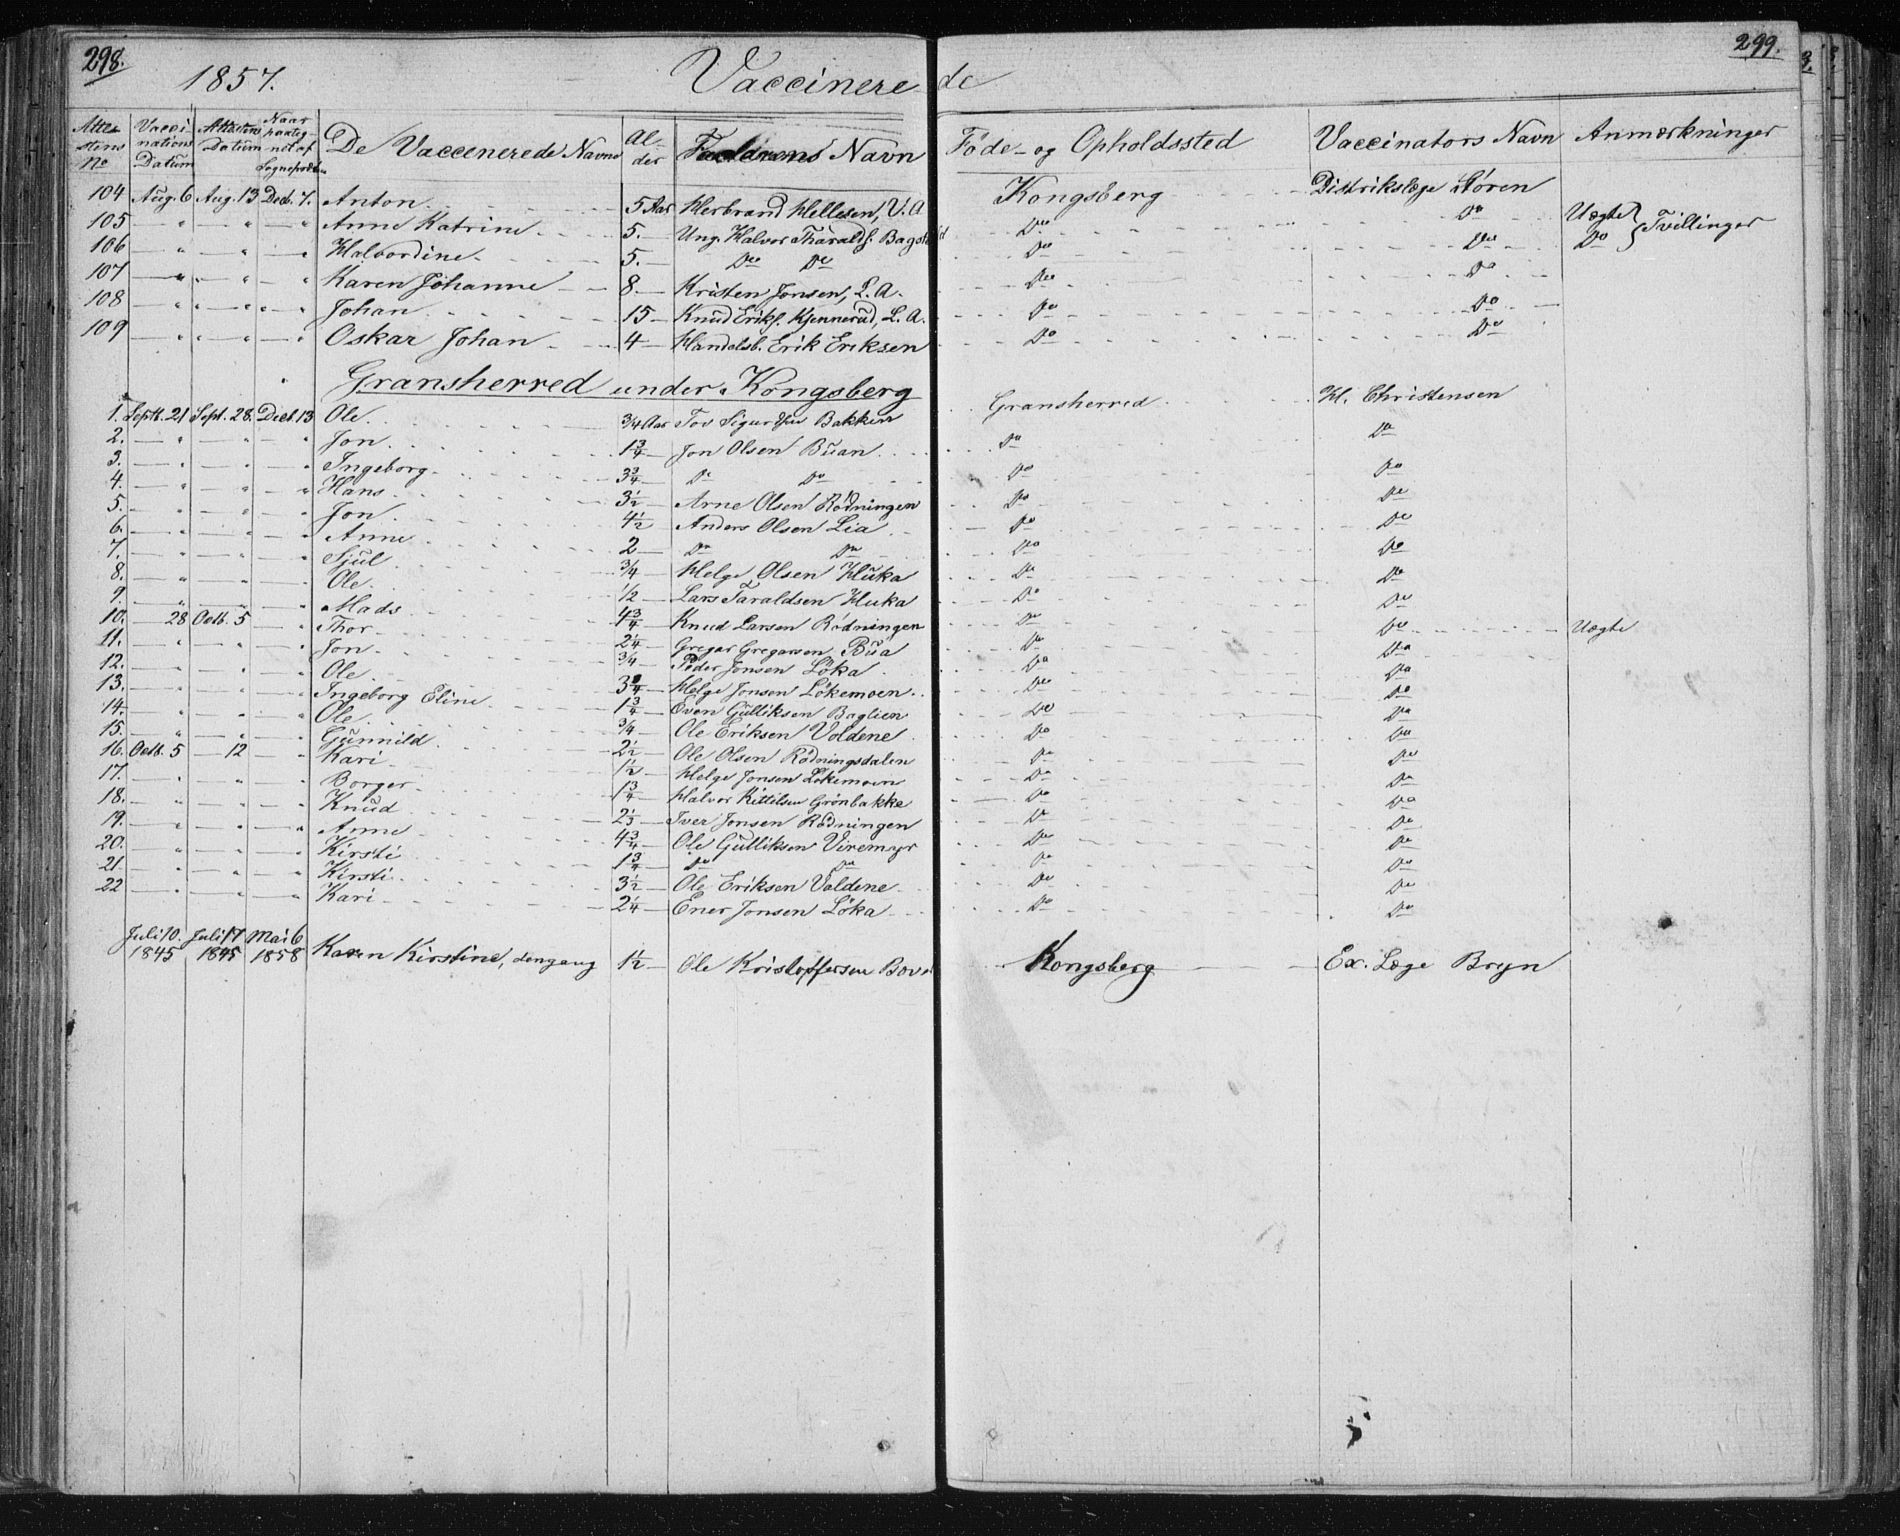 298.
299.
1857. Vaccinerede
Attestens No | Vaccinations Datum | Attestens Datum | Naar paateg- net af Sognepræsten | De Vaccenerede Navne | Alder | Faderens Navn | Føde- og Opholdssted | Vaccinators Navn | Anmærkninger
104 Aug. 6 Aug. 13 Decb. 7. Anton 5 Aar Herbrand Hellesen, V. A Kongsberg Distrikslæge Støren
105 " " " Anne Katrine 5. Ung. Halvor Tharalds. Bagstevold Do Do Uægte } Tvillinger
106 " " " Halvordine 5. Do Do Do Do Do
107 " " " Karen Johanne 8 Kristen Jonsen, L. A. Do Do
108 " " " Johan 15 Knud Eriks. Kjennerud, L. A. Do Do
109 " " " Oskar Johan 4 Handelsb. Erik Eriksen Do Do
Gransherred under Kongsberg
1. Septb. 21 Sept. 28. Decb. 13 Ole 3/4 Aar Tov Sigurdsen Bakken Gransherred Kl. Christensen
2. " " " Jon 1 3/4 Jon Olsen Buan Do Do
3. " " " Ingeborg 3 3/4 Do Do Do Do
4. " " " Hans 3 1/2 Arne Olsen Rødningen Do Do
5. " " " Jon 4 1/2 Anders Olsen Lia Do Do
6. " " " Anne 2 Do Do Do Do
7. " " " Sjul 3/4 Helge Olsen Hluka Do Do
8. " " " Ole 1/2 Lars Taraldsen Hluka Do Do
9. " " " Mads 4 3/4 Knud Larsen Rødningen Do Do
10. 28 Octb. 5 " Thor 2 1/4 Gregar Gregarsen Bua Do Do Uægte
11. " " " Jon 3/4 Peder Jonsen Løka Do Do
12. " " " Ole 3 3/4 Helge Jonsen Løkemoen Do Do
13. " " " Ingeborg Eline 1 3/4 Even Gulliksen Baglien Do Do
14. " " " Ole 3/4 Ole Eriksen Voldene Do Do
15. " " " Gunnild 2 1/2 Ole Olsen Rødningsdalen Do Do
16. Octb. 5 12 " Kari 1 1/2 Helge Jonsen Løkemoen Do Do
17. " " " Borger 1 3/4 Halvor Kittilsen Grønbakke Do Do
18. " " " Knud 2 1/3 Iver Jonsen Rødningen Do Do
19. " " " Anne 4 3/4 Ole Gulliksen Viremyr Do Do
20. " " " Kirsti 1 3/4 Do Do Do Do
21. " " " Kirsti 3 1/2 Ole Eriksen Voldene Do Do
22 " " " Kari 2 1/4 Ener Jonsen Løka Do Do
Juli 10. 1845 Juli 17 1845 Mai 6 1858 Karen Kirstine, dengang 1 1/2 Ole Kristoffersen Kongsberg Ex. Læge Bryn